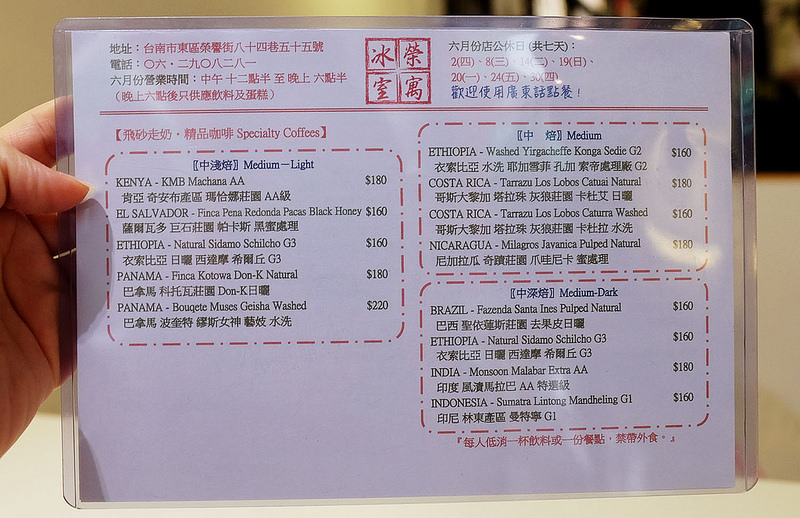 地址：台南市東區榮譽街八十四巷五十五號
電話：〇六・二九〇八二八一
六月份營業時間：中午 十二點半 至 晚上 六點半
（晚上六點後只供應飲料及蛋糕）
冰 榮
室 寓
六月份店公休日 (共七天)：
2(四)、8(三)、14(二)、19(日)、
20(一)、24(五)、30(四)
歡迎使用廣東話點餐！
【飛砂走奶・精品咖啡 Specialty Coffees】
〖中淺焙〗Medium－Light
KENYA - KMB Machana AA $180
肯亞 奇安布產區 瑪恰娜莊園 AA級
EL SALVADOR - Finca Pena Redonda Pacas Black Honey $160
薩爾瓦多 巨石莊園 帕卡斯 黑蜜處理
ETHIOPIA - Natural Sidamo Schilcho G3 $160
衣索比亞 日曬 西達摩 希爾丘 G3
PANAMA - Finca Kotowa Don-K Natural $180
巴拿馬 科托瓦莊園 Don-K日曬
PANAMA - Bouqete Muses Geisha Washed $220
巴拿馬 波奎特 繆斯女神 藝妓 水洗
〖中 焙〗Medium
ETHIOPIA - Washed Yirgacheffe Konga Sedie G2 $160
衣索比亞 水洗 耶加雪菲 孔加 索帝處理廠 G2
COSTA RICA - Tarrazu Los Lobos Catuai Natural $180
哥斯大黎加 塔拉珠 灰狼莊園 卡杜艾 日曬
COSTA RICA - Tarrazu Los Lobos Caturra Washed $160
哥斯大黎加 塔拉珠 灰狼莊園 卡杜拉 水洗
NICARAGUA - Milagros Javanica Pulped Natural $180
尼加拉瓜 奇蹟莊園 爪哇尼卡 蜜處理
〖中深焙〗Medium-Dark
BRAZIL - Fazenda Santa Ines Pulped Natural $160
巴西 聖依蓮斯莊園 去果皮日曬
ETHIOPIA - Natural Sidamo Schilcho G3 $160
衣索比亞 日曬 西達摩 希爾丘 G3
INDIA - Monsoon Malabar Extra AA $180
印度 風漬馬拉巴 AA 特選級
INDONESIA - Sumatra Lintong Mandheling G1 $160
印尼 林東產區 曼特寧 G1
『每人低消一杯飲料或一份餐點，禁帶外食。』